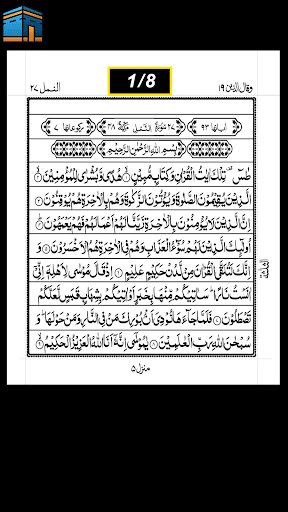 1/8
وقال الذین ١٩
النمل ٢٧
اٰیاتها ٩٣
٢٧ سُوْرَةُ النَّمْلِ مَكِّیَّةٌ ٤٨
رکوعاتها ٧
بِسْمِ اللهِ الرَّحْمٰنِ الرَّحِیْمِ
طٰسٓ تِلْكَ اٰیٰتُ الْقُرْاٰنِ وَكِتَابٍ مُّبِیْنٍ ۝١ هُدًی وَّبُشْرٰی لِلْمُؤْمِنِیْنَ ۝٢
الَّذِیْنَ یُقِیْمُوْنَ الصَّلٰوةَ وَیُؤْتُوْنَ الزَّكٰوةَ وَهُمْ بِالْاٰخِرَةِ هُمْ یُوْقِنُوْنَ ۝٣
اِنَّ الَّذِیْنَ لَا یُؤْمِنُوْنَ بِالْاٰخِرَةِ زَیَّنَّا لَهُمْ اَعْمَالَهُمْ فَهُمْ یَعْمَهُوْنَ ۝٤
اُولٰٓئِكَ الَّذِیْنَ لَهُمْ سُوْٓءُ الْعَذَابِ وَهُمْ فِی الْاٰخِرَةِ هُمُ الْاَخْسَرُوْنَ ۝٥
وَاِنَّكَ لَتُلَقَّی الْقُرْاٰنَ مِنْ لَّدُنْ حَكِیْمٍ عَلِیْمٍ ۝٦ اِذْ قَالَ مُوْسٰی لِاَهْلِهٖٓ اِنِّیْٓ
اٰنَسْتُ نَارًا ؕ سَاٰتِیْكُمْ مِّنْهَا بِخَبَرٍ اَوْ اٰتِیْكُمْ بِشِهَابٍ قَبَسٍ لَّعَلَّكُمْ
تَصْطَلُوْنَ ۝٧ فَلَمَّا جَآءَهَا نُوْدِیَ اَنْۢ بُوْرِكَ مَنْ فِی النَّارِ وَمَنْ حَوْلَهَا ؕ وَ
سُبْحٰنَ اللهِ رَبِّ الْعٰلَمِیْنَ ۝٨ یٰمُوْسٰٓی اِنَّهٗٓ اَنَا اللهُ الْعَزِیْزُ الْحَكِیْمُ ۝٩
منزل ٥